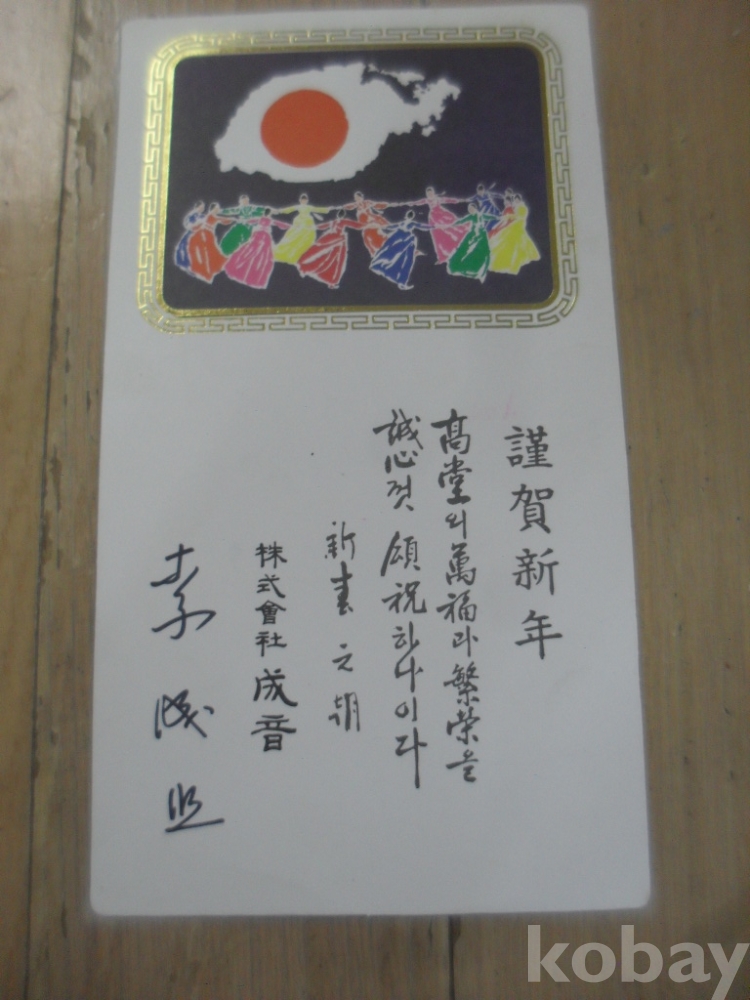 謹賀新年
高堂의 萬福과 繁榮을
誠心껏 頌祝하나이다
新春 元朝
株式會社 成音
李
kobay